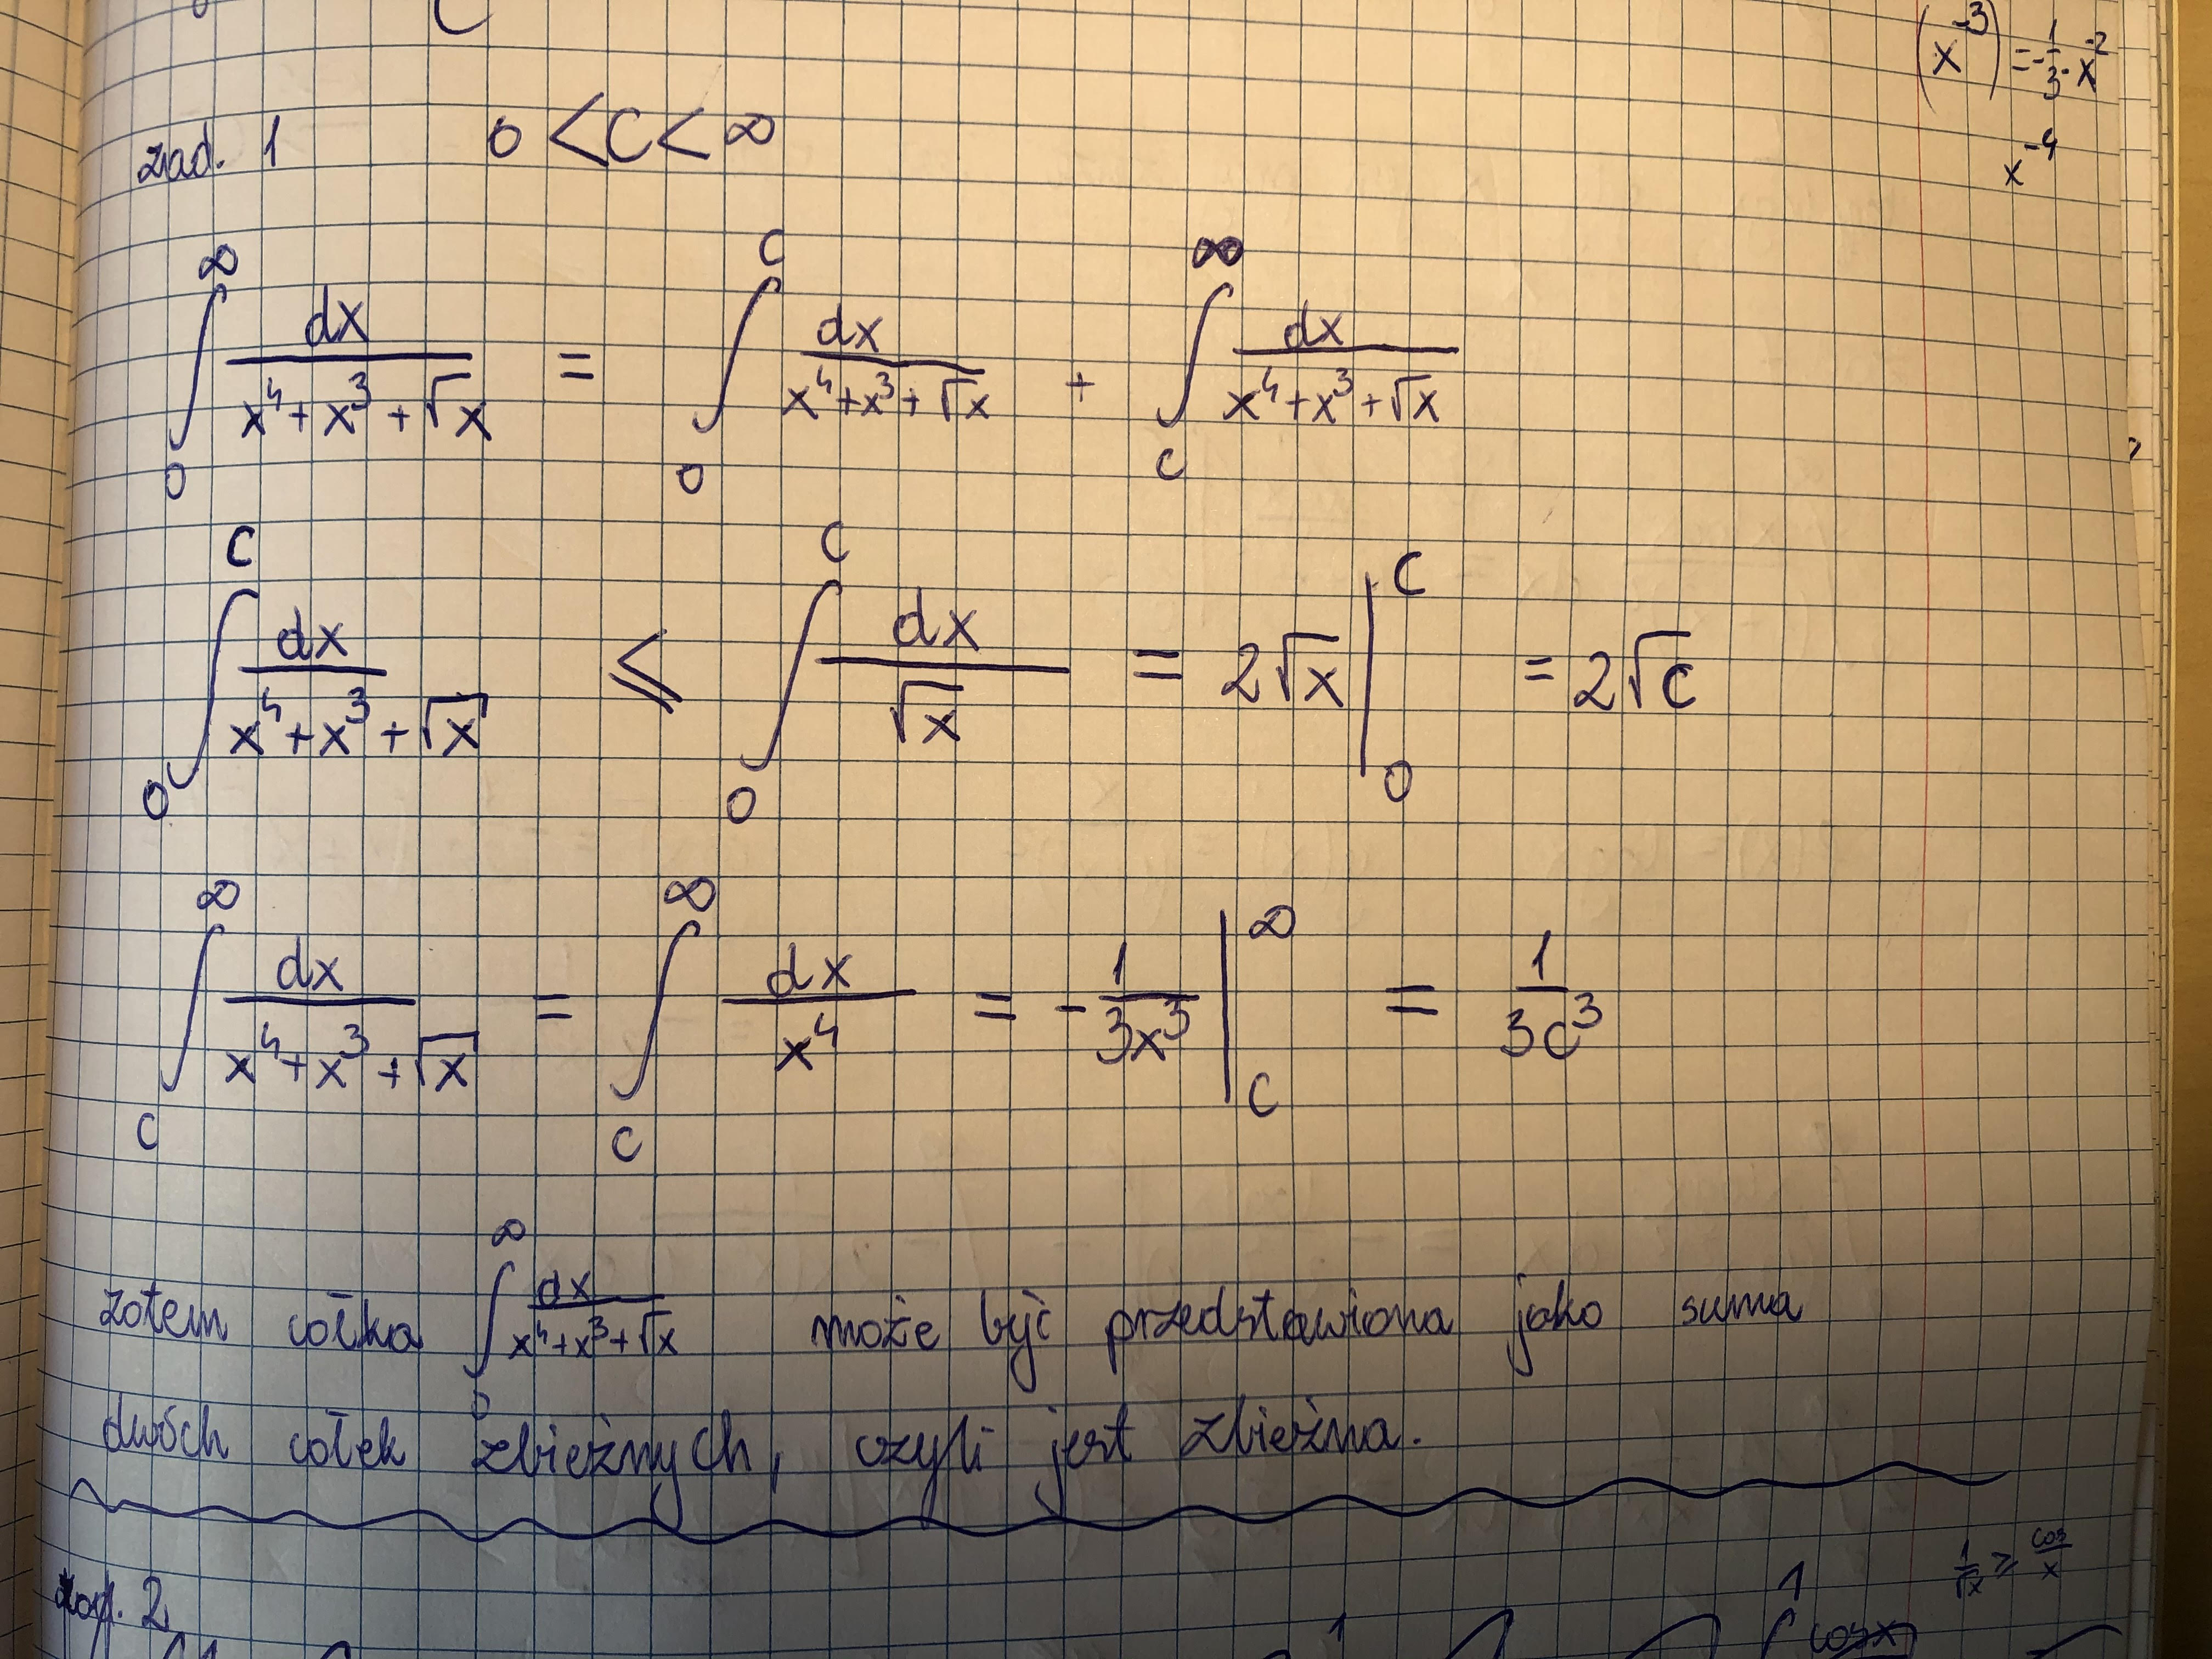 (x^-3) = -1/3 · x^-2
x^-4
zad. 1 0 < C < ∞
∫_0^∞ dx/(x^4+x^3+√x) = ∫_0^C dx/(x^4+x^3+√x) + ∫_C^∞ dx/(x^4+x^3+√x)
∫_0^C dx/(x^4+x^3+√x) ⩽ ∫_0^C dx/√x = 2√x |_0^C = 2√C
∫_C^∞ dx/(x^4+x^3+√x) = ∫_C^∞ dx/x^4 = -1/(3x^3) |_C^∞ = 1/(3C^3)
zatem całka ∫_0^∞ dx/(x^4+x^3+√x) może być przedstawiona jako suma
dwóch całek zbieżnych, czyli jest zbieżna.
1/√x ⩾ cos/x
zad. 2